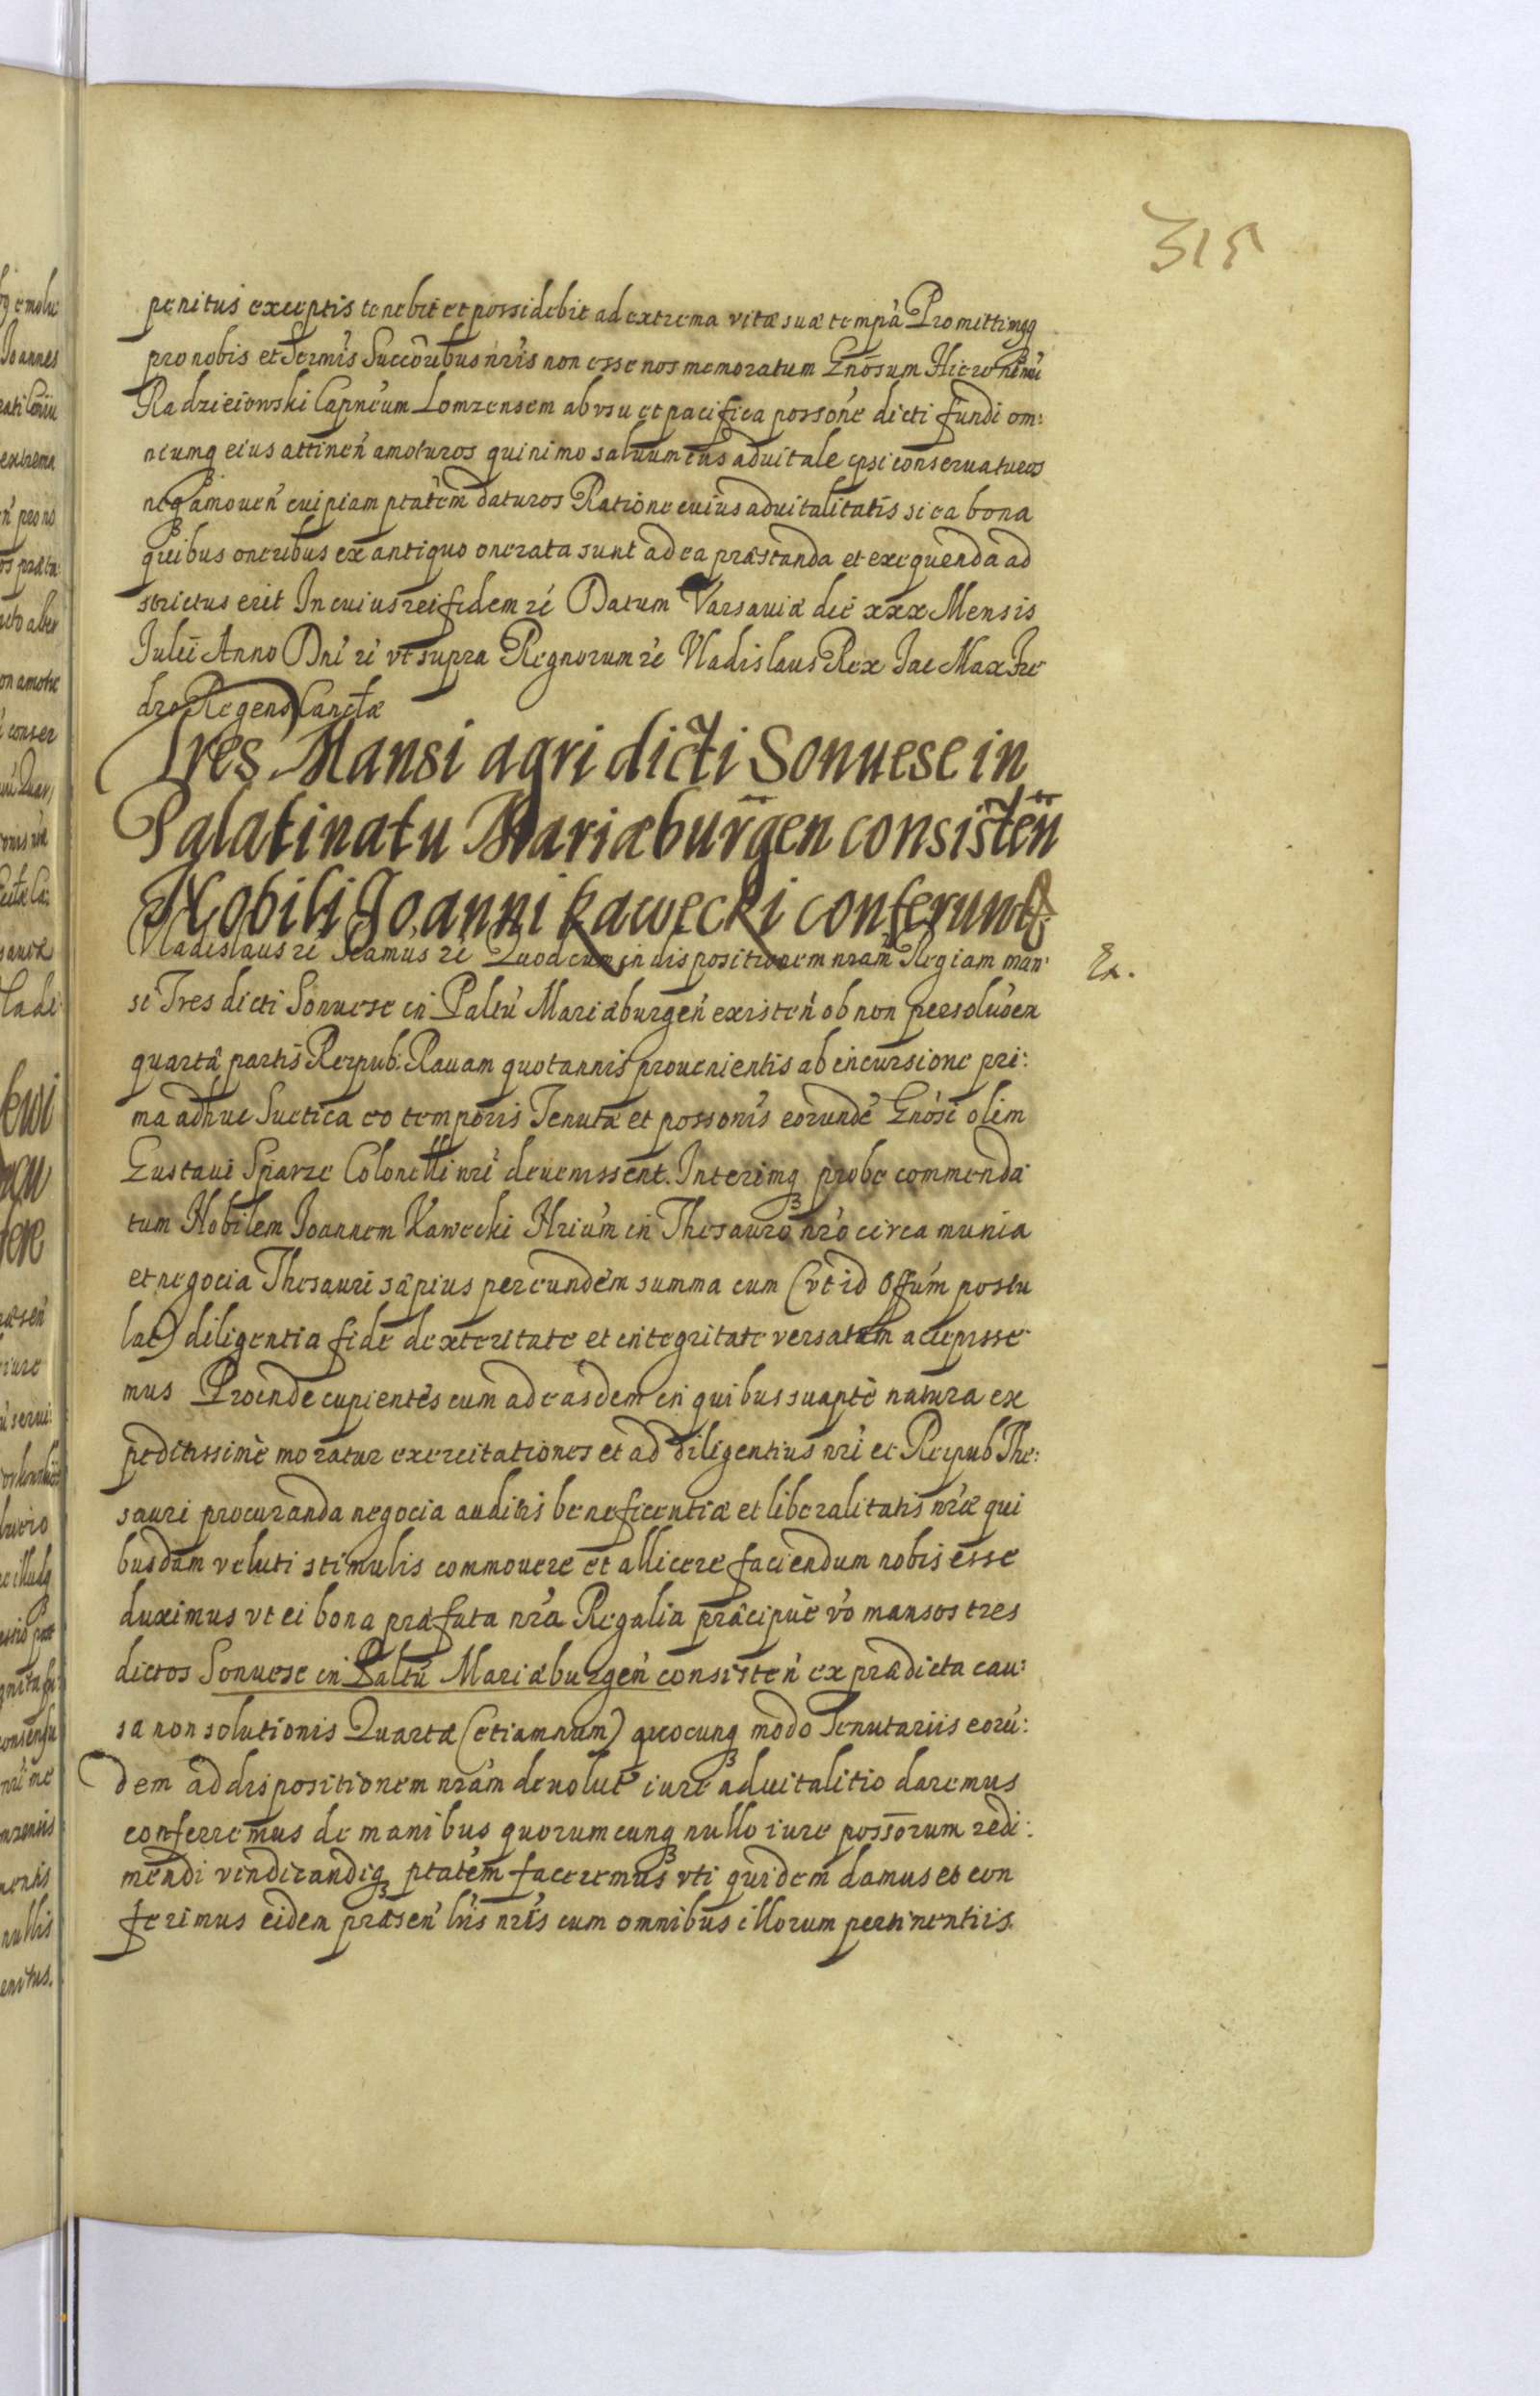 315
penitus exceptis tenebit et possidebit ad extrema vitæ suæ tempa Promittimusq
pro nobis et Sermis Succoribus nris non esse nos memoratum Gnosum Hieronimu
Radzieiowski Capneum Lomzensem ab vsu et pacifica possone dicti fundi om:
niumq eius attinen amoturos quinimo saluum ius aduitale ipsi conseruaturos
neq amouen cuipiam ptatem daturos Ratione cuius aduitalitatis si ea bona
quibus oneribus ex antiquo onerata sunt ad ea præstanda et exequenda ad
strictus erit In cuius rei fidem rc Datum Varsauiæ die xxx Mensis
Iulii Anno Dni rc vt supra Regnorum rc Vladislaus Rex Iac Max Fre
dro Regens Cancellæ
Tres Mansi agri dicti Sonuese in
Palatinatu Mariæburgen consisten
Nobili Joanni Kawecki conferunt
Vladislaus rc Scamus rc Quod cum in dispositionem nram Regiam man
Ex.
si Tres dicti Sonuese in Paltu Mariæburgen existen ob non persoluõen
quartæ partis Reipub: Rauam quotannis prouenientis ab incursione pri:
ma adhuc Suetica eo temporis Tenutæ et possonis eorunde Gnosi olim
Gustaui Sparze Colonelli nri deuenissent. Interimq probe commenda
tum Nobilem Joannem Kawecki Nrium in Thesauro nro circa munia
et negocia Thesauri sæpius per eundem summa cum (vt id Offum postu
lat) diligentia fide dexteritate et integritate versatum accepisse
mus Proinde cupientes eum ad easdem in quibus suapte natura ex
peditissime moratur exercitationes et ad diligentius nri et Reipub The:
sauri procuranda negocia auditis beneficentiæ et liberalitatis nræ qui
busdam veluti stimulis commouere et allicere faciendum nobis esse
duximus vt ei bona præfata nra Regalia præcipue vo mansos tres
dictos Sonuese in Paltu Mariæburgen consisten ex prædicta cau:
sa non solutionis Quartæ (etiamnum) quocunq modo Tenutariis eoru:
dem ad dispositionem nram deuolut iure aduitalitio daremus
conferremus de manibus quorumcunq nullo iure possorum redi:
mendi vendicandiq ptatem faceremus vti quidem damus et con
ferimus eidem præsen lris nris cum omnibus illorum pertinentiis